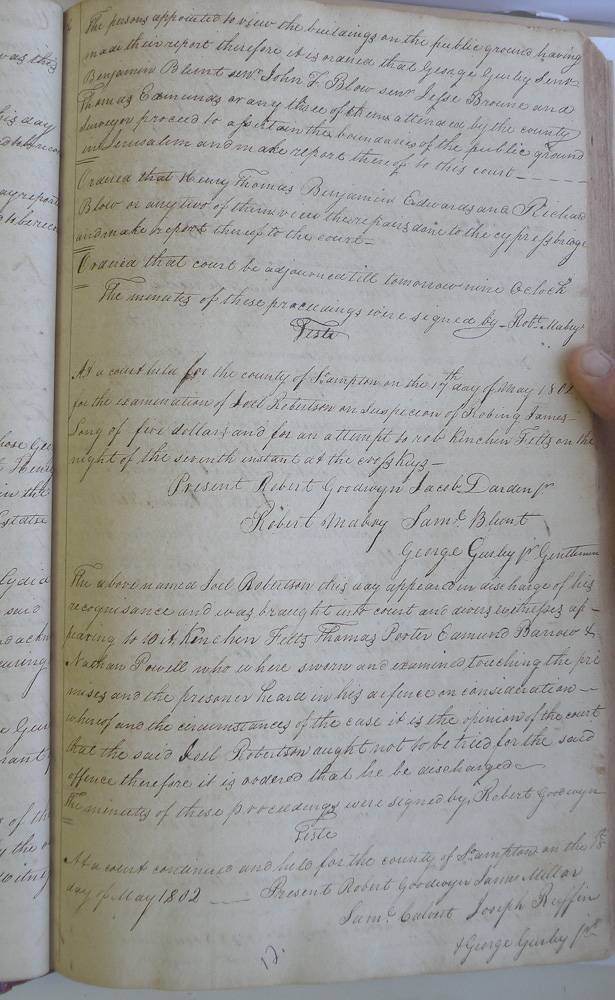 The persons appointed to view the buildings on the public ground having
made their report therefore it is ordered that George Gurley Senr.
Benjamin Blunt senr. John F. Blow senr. Jesse Browne and
Thomas Edmunds or any three of them attended by the county
surveyor proceed to assertain the boundaries of the public ground
in Jerusalem and make report thereof to this court
Ordered that Henry Thomas Benjamin Edwards and Richard
Blow or any two of them view the repairs done to the cypress brige
and make report thereof to the court
Ordered that court be adjourned till tomorrow nine Oclock
The minutes of these proceedings were signed by Robt. Mabry
Teste
At a court held for the county of So.ampton on the 17th day of May 1802
for the examination of Joel Robertson on suspecion of Robing James
Long of five dollars and for an attempt to rob Kinchen Felts on the
night of the seventh instant at the cross keys
Present Robert Goodwyn Jacob Darden jr
Robert Mabry Saml. Blunt
George Gurley jr. Gentlemen
The above named Joel Robertson this day appeared in discharge of his
recognisance and was braught into court and divers witnesses ap-
pearing to wit Kinchen Felts Thomas Porter Edmund Barrow &
Nathan Powell who where sworn and examined touching the pre
mises and the prisoner heard in his defence on consideration
whereof and the circumstances of the case it is the opinion of the court
that the said Joel Robertson aught not to be tried for the said
offence therefore it is ordered that he be discharged
The minutes of these proceedings were signed by Robert Goodwyn
Teste
At a court continued and held for the county of So.ampton on the 18th
day of May 1802 Present Robert Goodwyn James Millar
Saml. Calvert Joseph Ruffin
& George Gurley Junr
12.